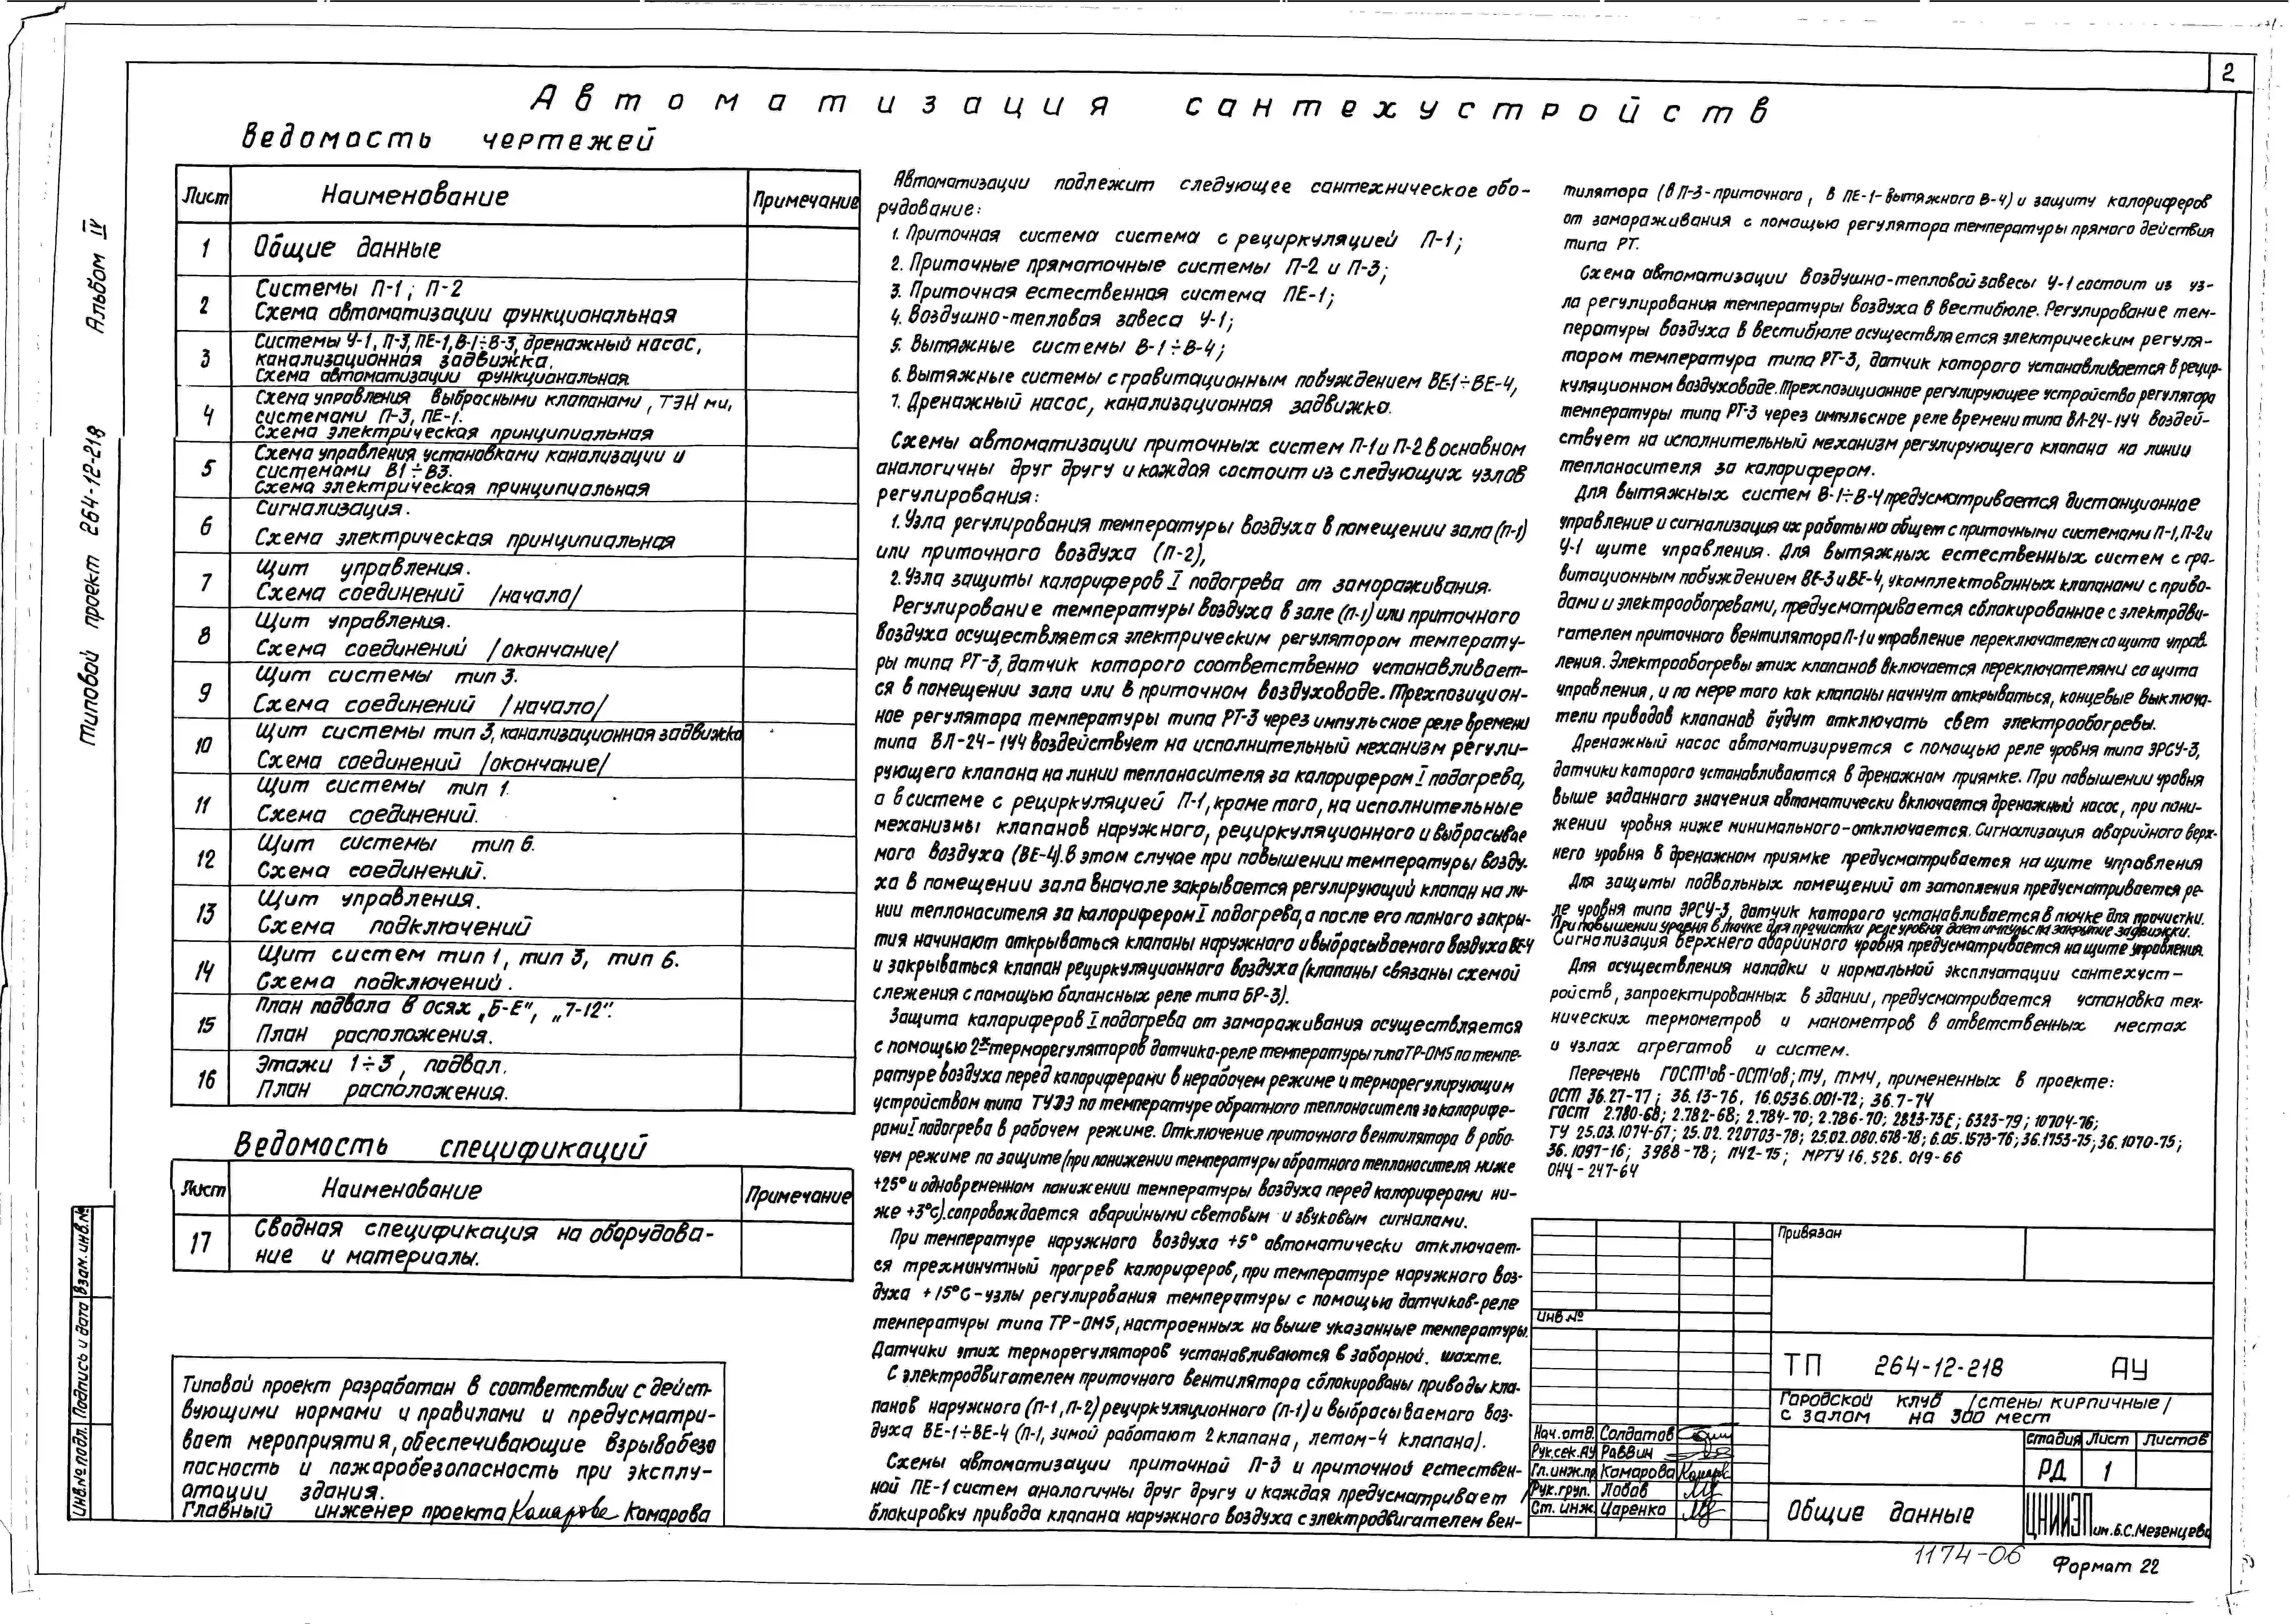 2
Автоматизация сантехустройств
Ведомость чертежей
Лист Наименование Примечание
1 Общие данные
2 Системы П-1; П-2
Схема автоматизации функциональная
3 Системы У-1, П-3, ПЕ-1, В-1÷В-3, дренажный насос,
канализационная задвижка.
Схема автоматизации функциональная
4 Схема управления выбросными клапанами, ТЭН ми,
системами П-3, ПЕ-1.
Схема электрическая принципиальная
5 Схема управления установками канализации и
системами В1÷В3.
Схема электрическая принципиальная
6 Сигнализация.
Схема электрическая принципиальная
7 Щит управления.
Схема соединений /начало/
8 Щит управления.
Схема соединений /окончание/
9 Щит системы тип 3.
Схема соединений /начало/
10 Щит системы тип 3, канализационная задвижка
Схема соединений /окончание/
11 Щит системы тип 1.
Схема соединений.
12 Щит системы тип 6.
Схема соединений.
13 Щит управления.
Схема подключений
14 Щит систем тип 1, тип 3, тип 6.
Схема подключений.
15 План подвала в осях „Б-Е", „7-12".
План расположения.
16 Этажи 1÷3, подвал.
План расположения.
Ведомость спецификаций
Лист Наименование Примечание
17 Сводная спецификация на оборудова-
ние и материалы.
Типовой проект разработан в соответствии с дейст-
вующими нормами и правилами и предусматри-
вает мероприятия, обеспечивающие взрывобезо
пасность и пожаробезопасность при эксплу-
атации здания.
Главный инженер проекта Комарова
Автоматизации подлежит следующее сантехническое обо-
рудование:
1. Приточная система система с рециркуляцией П-1;
2. Приточные прямоточные системы П-2 и П-3;
3. Приточная естественная система ПЕ-1;
4. Воздушно-тепловая завеса У-1;
5. Вытяжные системы В-1÷В-4;
6. Вытяжные системы с гравитационным побуждением ВЕ-1÷ВЕ-4,
7. Дренажный насос, канализационная задвижка.
Схемы автоматизации приточных систем П-1 и П-2 в основном
аналогичны друг другу и каждая состоит из следующих узлов
регулирования:
1. Узла регулирования температуры воздуха в помещении зала (П-1)
или приточного воздуха (П-2),
2. Узла защиты калориферов I подогрева от замораживания.
Регулирование температуры воздуха в зале (П-1) или приточного
воздуха осуществляется электрическим регулятором температу-
ры типа РТ-3, датчик которого соответственно устанавливает-
ся в помещении зала или в приточном воздуховоде. Трехпозицион-
ное регулятора температуры типа РТ-3 через импульсное реле времени
типа ВЛ-24-1У4 воздействует на исполнительный механизм регули-
рующего клапана на линии теплоносителя за калорифером I подогрева,
а в системе с рециркуляцией П-1, кроме того, на исполнительные
механизмы клапанов наружного, рециркуляционного и выбрасывае
мого воздуха (ВЕ-4). В этом случае при повышении температуры возду-
ха в помещении зала вначале закрывается регулирующий клапан на ли-
нии теплоносителя за калорифером I подогрева, а после его полного закры-
тия начинают открываться клапаны наружного и выбрасываемого воздуха ВЕ-4
и закрываться клапан рециркуляционного воздуха (клапаны связаны схемой
слежения с помощью балансных реле типа БР-3).
Защита калориферов I подогрева от замораживания осуществляется
с помощью 2х терморегуляторов датчика-реле температуры типа ТР-ОМ5 по темпе-
ратуре воздуха перед калориферами в нерабочем режиме и терморегулирующим
устройством типа ТУДЭ по температуре обратного теплоносителя за калорифе-
рами I подогрева в рабочем режиме. Отключение приточного вентилятора в рабо-
чем режиме по защите (при понижении температуры обратного теплоносителя ниже
+25° и одновременном понижении температуры воздуха перед калориферами ни-
же +3°С). сопровождается аварийными световым и звуковым сигналами.
При температуре наружного воздуха +5° автоматически отключает-
ся трехминутный прогрев калориферов, при температуре наружного воз-
духа +15°С-узлы регулирования температуры с помощью датчиков-реле
температуры типа ТР-ОМ5, настроенных на выше указанные температуры.
Датчики этих терморегуляторов устанавливаются в заборной. шахте.
С электродвигателем приточного вентилятора сблокированы приводы кла-
панов наружного (П-1, П-2) рециркуляционного (П-1) и выбрасываемого воз-
духа ВЕ-1÷ВЕ-4 (П-1, зимой работают 2 клапана, летом-4 клапана).
Схемы автоматизации приточной П-3 и приточной естествен-
ной ПЕ-1 систем аналогичны друг другу и каждая предусматривает
блокировку привода клапана наружного воздуха с электродвигателем вен-
тилятора (в П-3-приточного, в ПЕ-1-вытяжного В-4) и защиту калориферов
от замораживания с помощью регулятора температуры прямого действия
типа РТ.
Схема автоматизации воздушно-тепловой завесы У-1 состоит из уз-
ла регулирования температуры воздуха в вестибюле. Регулирование тем-
пературы воздуха в вестибюле осуществляется электрическим регуля-
тором температура типа РТ-3, датчик которого устанавливается в рецир-
куляционном воздуховоде. Трехпозиционное регулирующее устройство регулятора
температуры типа РТ-3 через импульсное реле времени типа ВЛ-24-1У4 воздей-
ствует на исполнительный механизм регулирующего клапана на линии
теплоносителя за калорифером.
Для вытяжных систем В-1÷В-4 предусматривается дистанционное
управление и сигнализация их работы на общем с приточными системами П-1, П-2 и
У-1 щите управления. Для вытяжных естественных систем с гра-
витационным побуждением ВЕ-3 и ВЕ-4, укомплектованных клапанами с приво-
дами и электрообогревами, предусматривается сблокированное с электродви-
гателем приточного вентилятора П-1 и управление переключателем со щита управ-
ления. Электрообогревы этих клапанов включается переключателями со щита
управления, и по мере того как клапаны начнут открываться, концевые выключа-
тели приводов клапанов будут отключать свет электрообогревы.
Дренажный насос автоматизируется с помощью реле уровня типа ЭРСУ-3,
датчики которого устанавливаются в дренажном приямке. При повышении уровня
выше заданного значения автоматически включается дренажный насос, при пони-
жении уровня ниже минимального-отключается. Сигнализация аварийного верх-
него уровня в дренажном приямке предусматривается на щите управления
Для защиты подвальных помещений от затопления предусматривается ре-
ле уровня типа ЭРСУ-3, датчик которого устанавливается в лючке для прочистки.
При повышении уровня в лючке для прочистки реле уровня дает импульс на закрытие задвижки.
Сигнализация верхнего аварийного уровня предусматривается на щите управления.
Для осуществления наладки и нормальной эксплуатации сантехуст-
ройств, запроектированных в здании, предусматривается установка тех-
нических термометров и манометров в ответственных местах
и узлах агрегатов и систем.
Перечень ГОСТ'ов-ОСТ'ов; ТУ, ТМЧ, примененных в проекте:
ОСТ 36.27-77; 36.13-76, 16.0536.001-72; 36.7-74
ГОСТ 2.780-68; 2.782-68; 2.784-70; 2.786-70; 2823-73Е; 6323-79; 10704-76;
ТУ 25.03.1074-67; 25.02.220703-78; 25.02.080.678-78; 6.05.1573-76; 36.1753-75; 36.1070-75;
36.1097-76; 3988-78; ПЧ2-75; МРТУ 16.526.019-66
ОНЧ-247-64
Привязан
Инв.№
ТП 264-12-218 АУ
Городской клуб /стены кирпичные/
с залом на 300 мест
Нач.отд. Солдатов
Рук.сек.АУ Раввин
Гл.инж.пр Комарова
Рук.груп. Лобов
Ст. инж. Царенко
Стадия Лист Листов
РД 1
Общие данные
ЦНИИЭП им. Б.С.Мезенцева
1174-06
Формат 22
Типовой проект 264-12-218 Альбом IV
Инв.№ подл. Подпись и дата Взам.инв.№